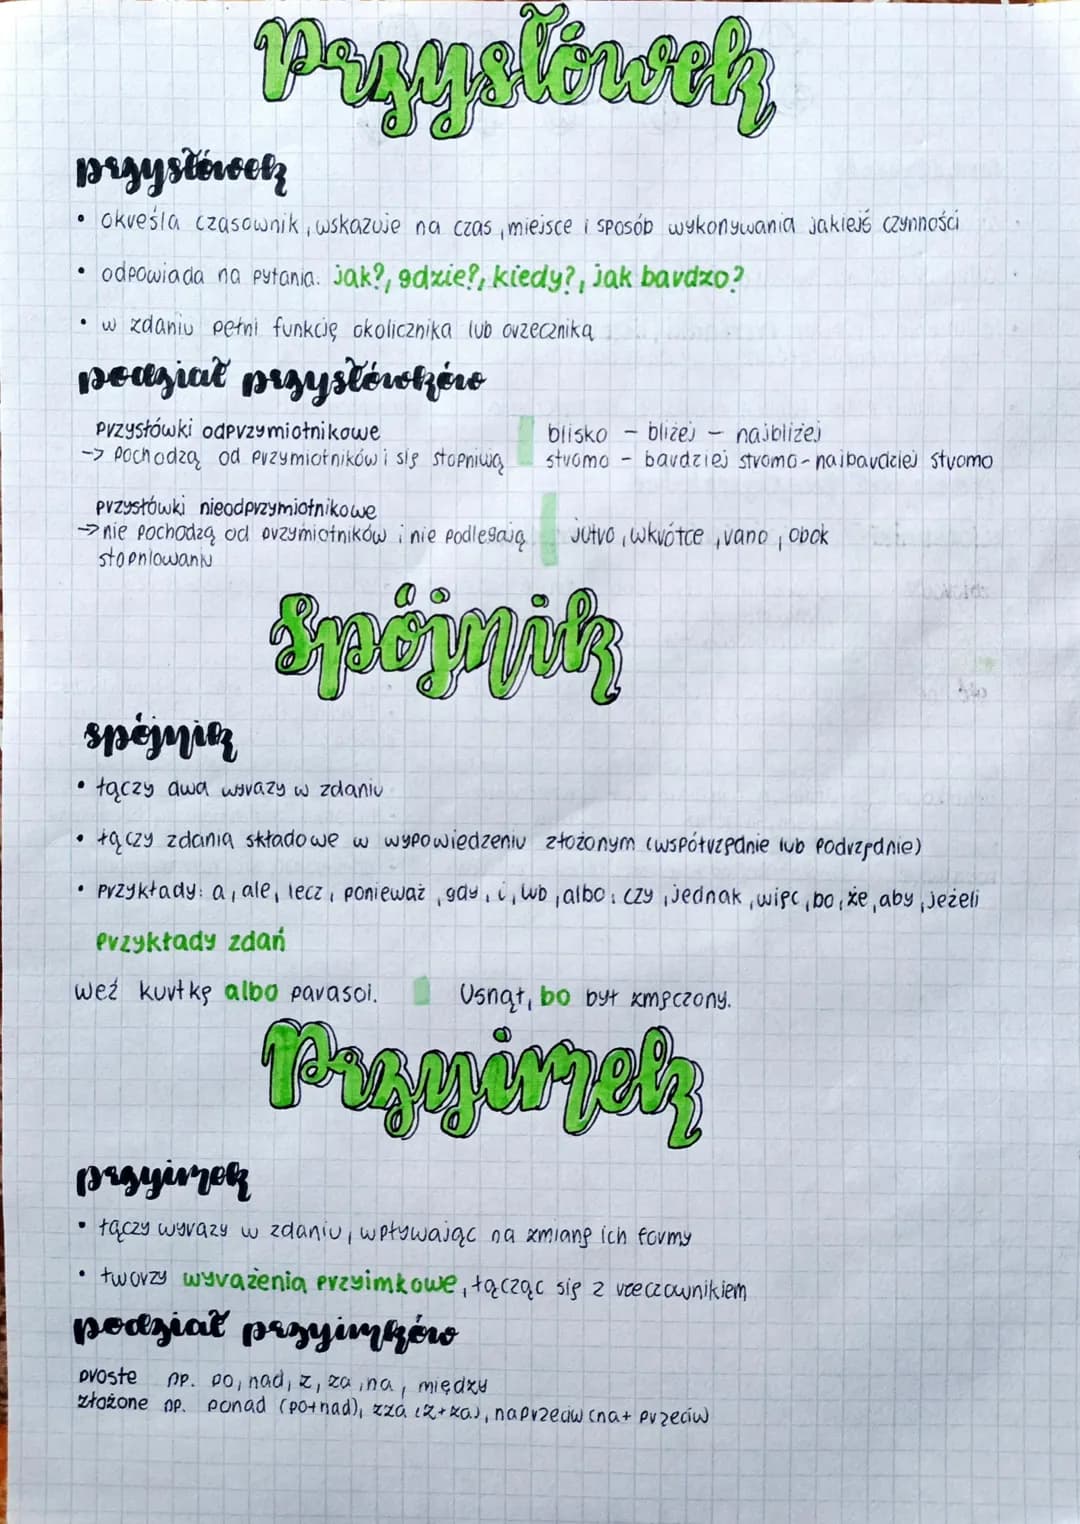 Przysłówek
przysłówek
• określa czasownik, wskazuje na czas, miejsce i sposób wykonywania jakiejś czynności
• odpowiada na pytania: jak?, gdzie?, kiedy?, jak bardzo?
• w zdaniu pełni funkcję okolicznika lub orzecznika
podział przysłówków
przysłówki odprzymiotnikowe
-> pochodzą od przymiotników i się stopniują
blisko - bliżej - najbliżej
stromo - bardziej stromo - najbardziej stromo
przysłówki nieodprzymiotnikowe
-> nie pochodzą od przymiotników i nie podlegają
stopniowaniu
jutro, wkrótce, rano, obok
Spójnik
spójnik
• łączy dwa wyrazy w zdaniu
• łączy zdania składowe w wypowiedzeniu złożonym (współrzędnie lub podrzędnie)
• przykłady: a, ale, lecz, ponieważ, gdy, i, lub, albo, czy, jednak, więc, bo, że, aby, jeżeli
przykłady zdań
weź kurtkę albo parasol.
Usnął, bo był zmęczony.
Przyimek
przyimek
• łączy wyrazy w zdaniu, wpływając na zmianę ich formy
• tworzy wyrażenia przyimkowe, łącząc się z rzeczownikiem
podział przyimków
proste np. po, nad, z, za, na, między
złożone np. ponad (po+nad), zza (z+za), naprzeciw (na+ przeciw)